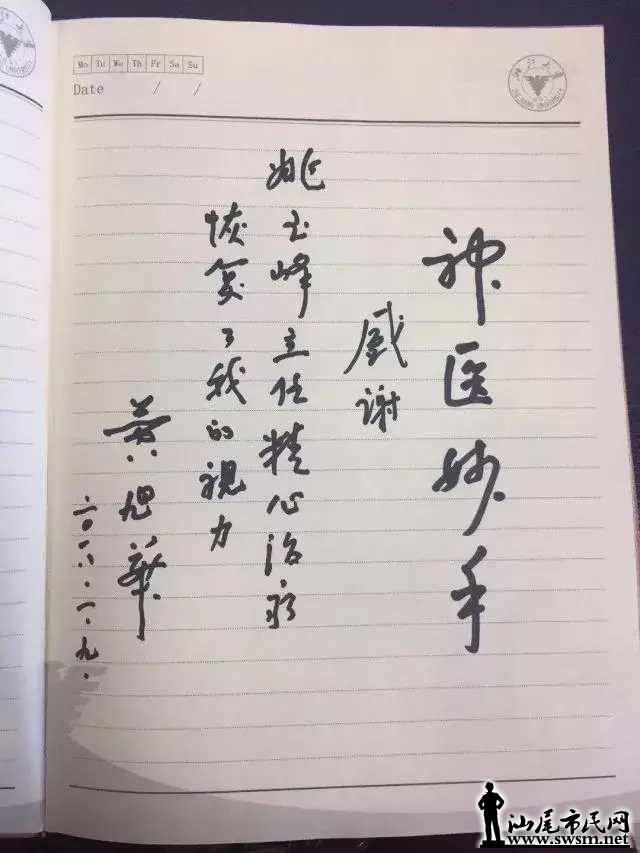 神医妙手
感谢
姚玉峰主任精心治疗
恢复了我的视力
黄旭华
二〇一八·一·九·
Mo Tu We Th Fr Sa Su
Date / /
浙江大学
ZHEJIANG UNIVERSITY
汕尾市民网
www.swsm.net